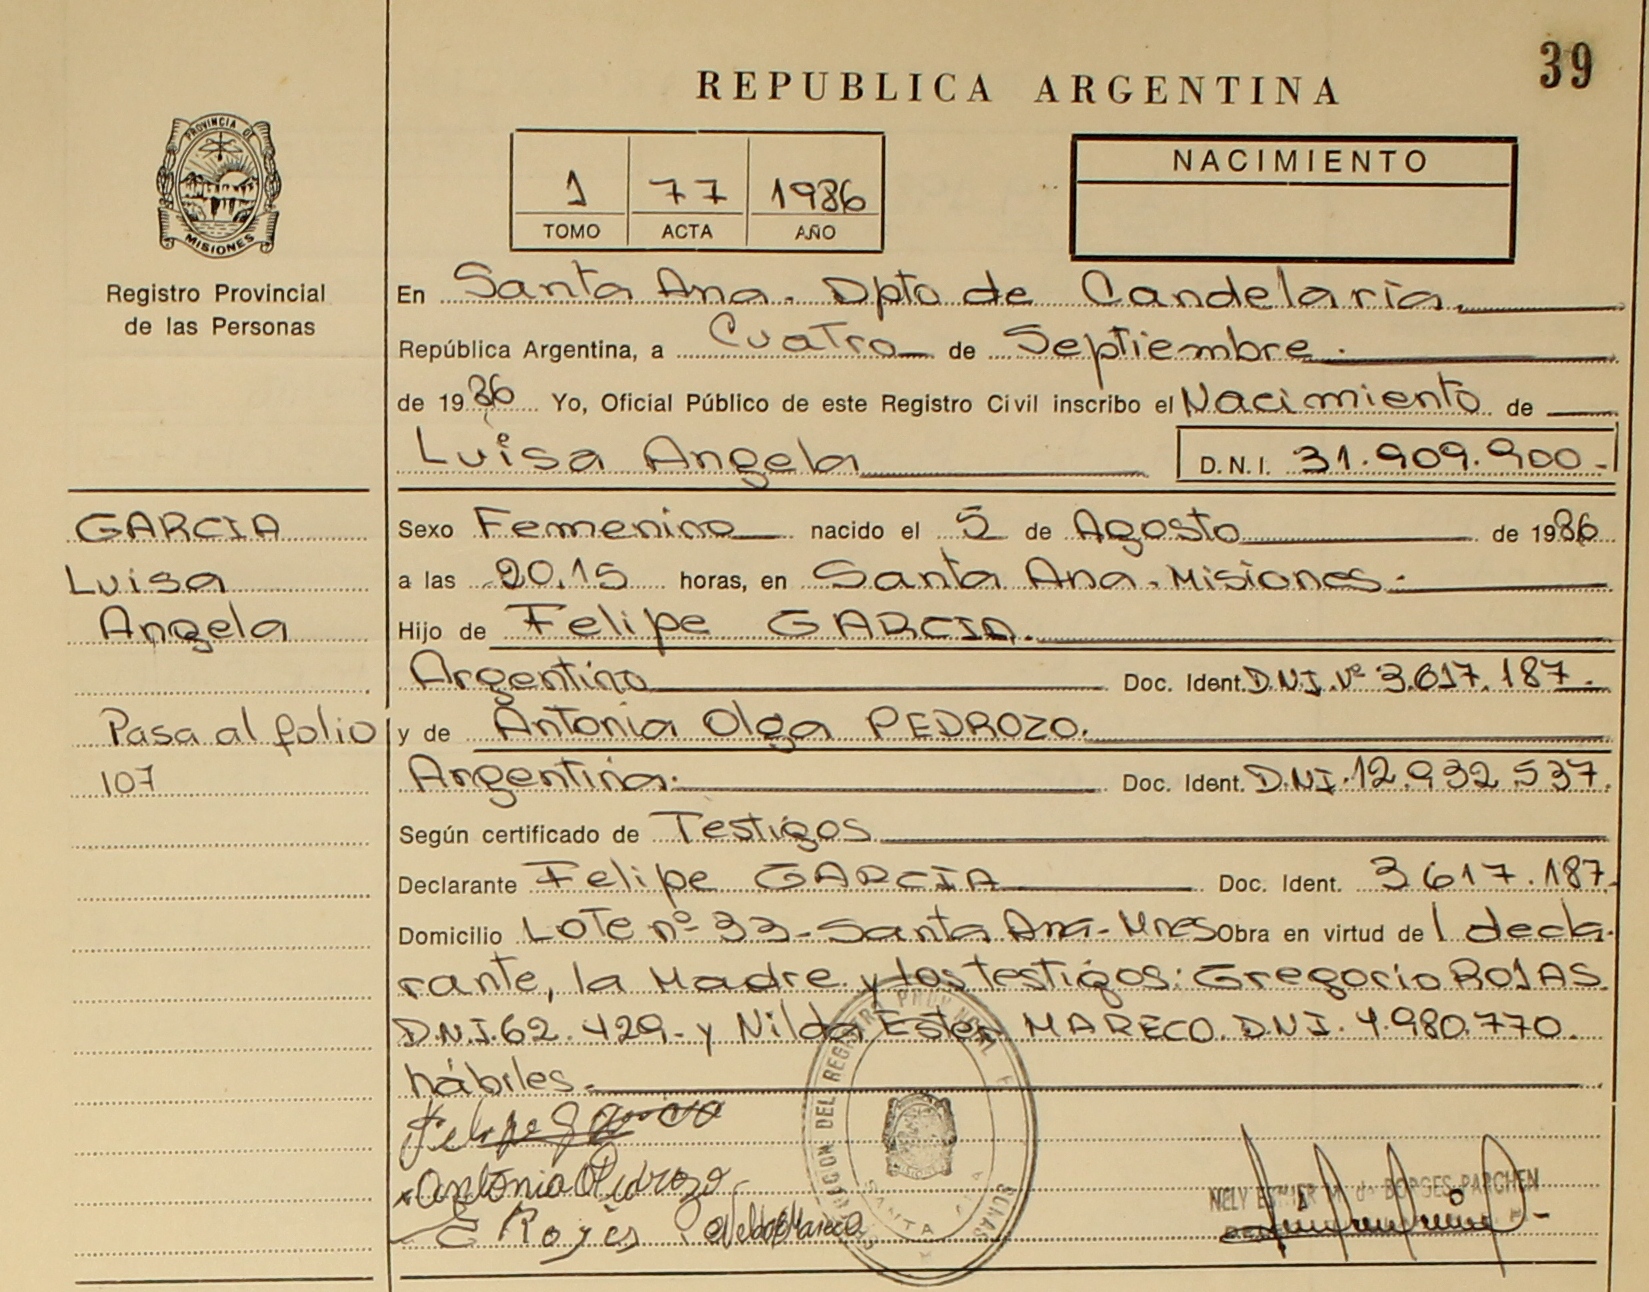 39
REPUBLICA ARGENTINA
PROVINCIA DE
MISIONES
Registro Provincial
de las Personas
1 77 1986
TOMO ACTA AÑO
NACIMIENTO
En Santa Ana. Dpto de Candelaria.
República Argentina, a Cuatro de Septiembre.
de 1986 Yo, Oficial Público de este Registro Civil inscribo el Nacimiento de
Luisa Angela D.N.I. 31.909.900.-
GARCIA
Luisa
Angela
Pasa al folio
107
Sexo Femenino nacido el 5 de Agosto de 1986
a las 20.15 horas, en Santa Ana. Misiones.
Hijo de Felipe GARCIA.
Argentino Doc. Ident. D.N.I. Nº 3.617.187.
y de Antonia Olga PEDROZO.
Argentina. Doc. Ident. D.N.I. 12.932.537.
Según certificado de Testigos
Declarante Felipe GARCIA Doc. Ident. 3.617.187.
Domicilio Lote nº 33 - Santa Ana - Mnes Obra en virtud de l decla-
rante, la Madre y los testigos: Gregorio ROJAS
D.N.I. 62.429 - y Nilda Ester MARECO. D.N.I. 4.980.770.
hábiles.
Felipe Garcia
Antonia O Pedrozo
Rojas Nelda Mareco
SANTA
NELY ESTHER M. de BORGES PARCHEN